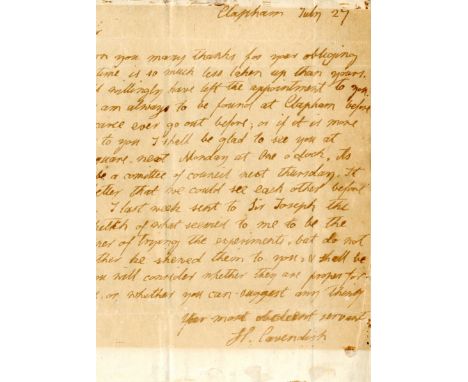 Clapham July 27
you many thanks for your obliging
time is so much less taken up than yours.
willingly have left the appointment to you
am always to be found at Clapham before
ever go out before, or if it is more
to you I shall be glad to see you at
square next Monday at one o clock. As
be a comittee of council next thursday. It
better that we could see each other before
I last week sent to Sir Joseph the
sketch of what seemed to me to be the
of trying the experiments, but do not
he shewed them to you, & shall be
you will consider whether they are proper for
or whether you can suggest any thing
your most obedient servant
H. Cavendish